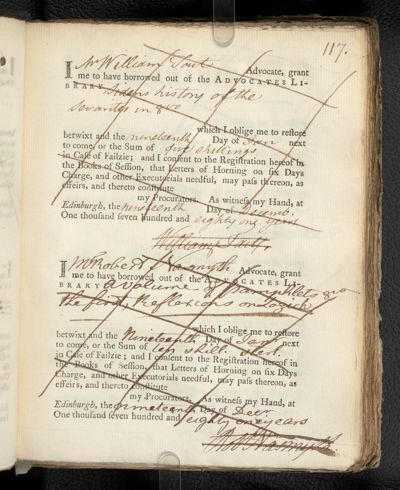 117.
I Mr William Tait Advocate, grant
me to have borrowed out of the ADVOCATES LI-
BRARY history of the
in 8vo
which I oblige me to reſtore
betwixt and the nineteenth Day of Jan next
to come, or the Sum of five shillings
in Caſe of Failzie; and I conſent to the Regiſtration hereof in
the Books of Seſſion, that Letters of Horning on ſix Days
Charge, and other Executorials needful, may paſs thereon, as
effeirs, and thereto conſtitute
my Procurators. As witneſs my Hand, at
Edinburgh, the nineteenth Day of Decemb.
One thouſand ſeven hundred and eighty one years
William Tait
I Mr Robert Nasmyth Advocate, grant
me to have borrowed out of the ADVOCATES LI-
BRARY a volume of Pamphlets
the first, Reflexions on
which I oblige me to reſtore
betwixt and the Nineteenth Day of Jan. next
to come, or the Sum of ten shill. sterl.
in Caſe of Failzie; and I conſent to the Regiſtration hereof in
the Books of Seſſion, that Letters of Horning on ſix Days
Charge, and other Executorials needful, may paſs thereon, as
effeirs, and thereto conſtitute
my Procurators. As witneſs my Hand, at
Edinburgh, the nineteenth Day of Decr.
One thouſand ſeven hundred and eighty one years
Robt Nasmyth.